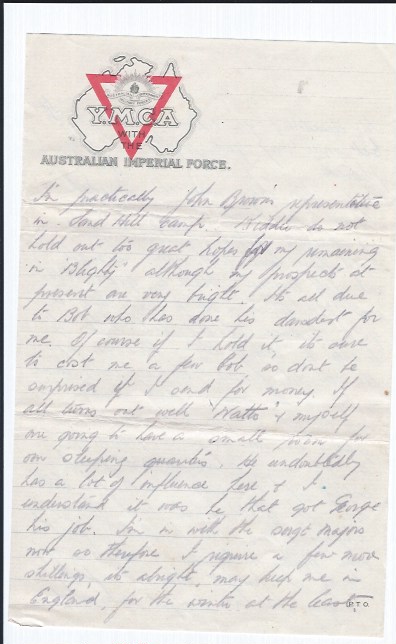 Y.M.C.A
WITH
THE
AUSTRALIAN IMPERIAL FORCE.
I'm practically John Brown's representative
in Sand Hill Camp. Kiddie do not
hold out too great hopes of my remaining
in 'Blighty' although my prospects at
present are very bright. Its all due
to Bob who has done his damdest for
me. Of course if I hold it its sure
to cost me a few bob, so dont be
surprised if I send for money. If
all turns out well & myself
are going to have a small room for
our sleeping quarters. He undoubtedly
has a lot of influence here & I
understand it was he that got George
his job. I'm in with the sergt majors
now so therefore I require a few more
shillings, its alright, may keep me in
England, for the winter at the least
P.T.O.